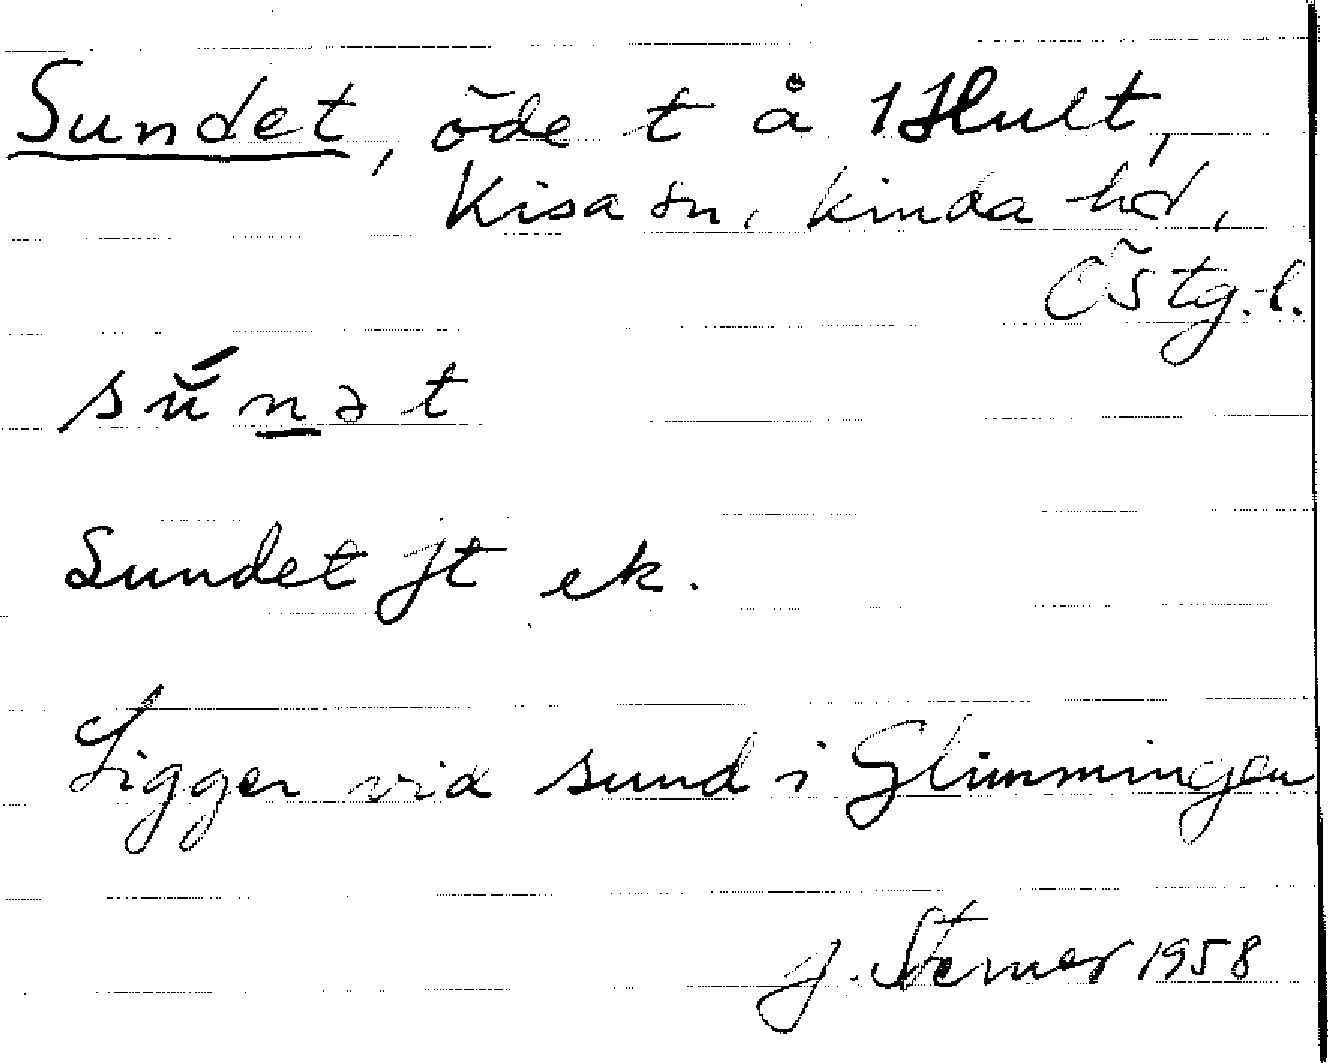 Sundet, öde t å 1 Hult,
Kisa sn, Kinda hd,
Östg. l.
sŭ́nət
Sundet jt ek.
Ligger vid sund i Glimmingen
J. Sterner 1958